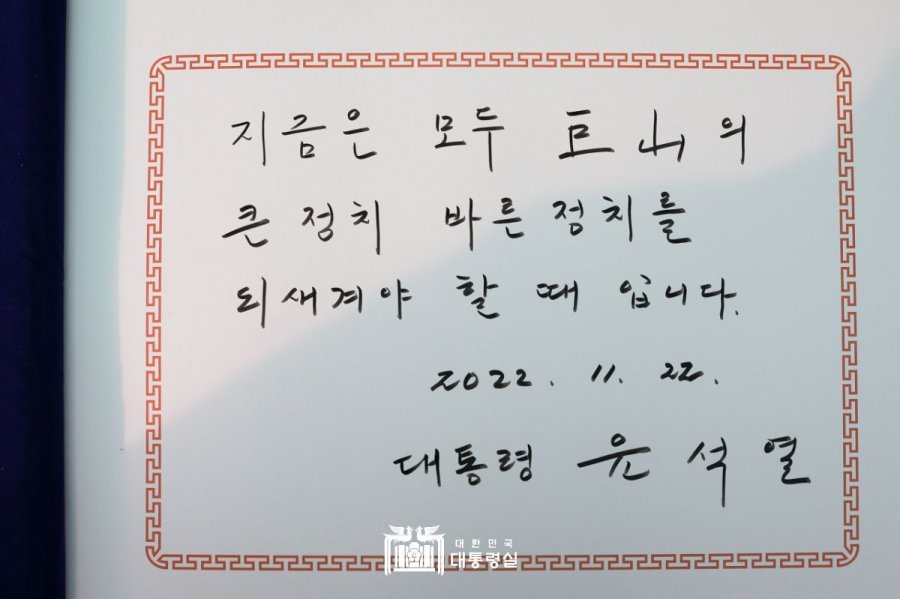 지금은 모두 巨山의
큰 정치 바른 정치를
되새겨야 할 때 입니다.
2022. 11. 22.
대통령 윤석열
대한민국
대통령실